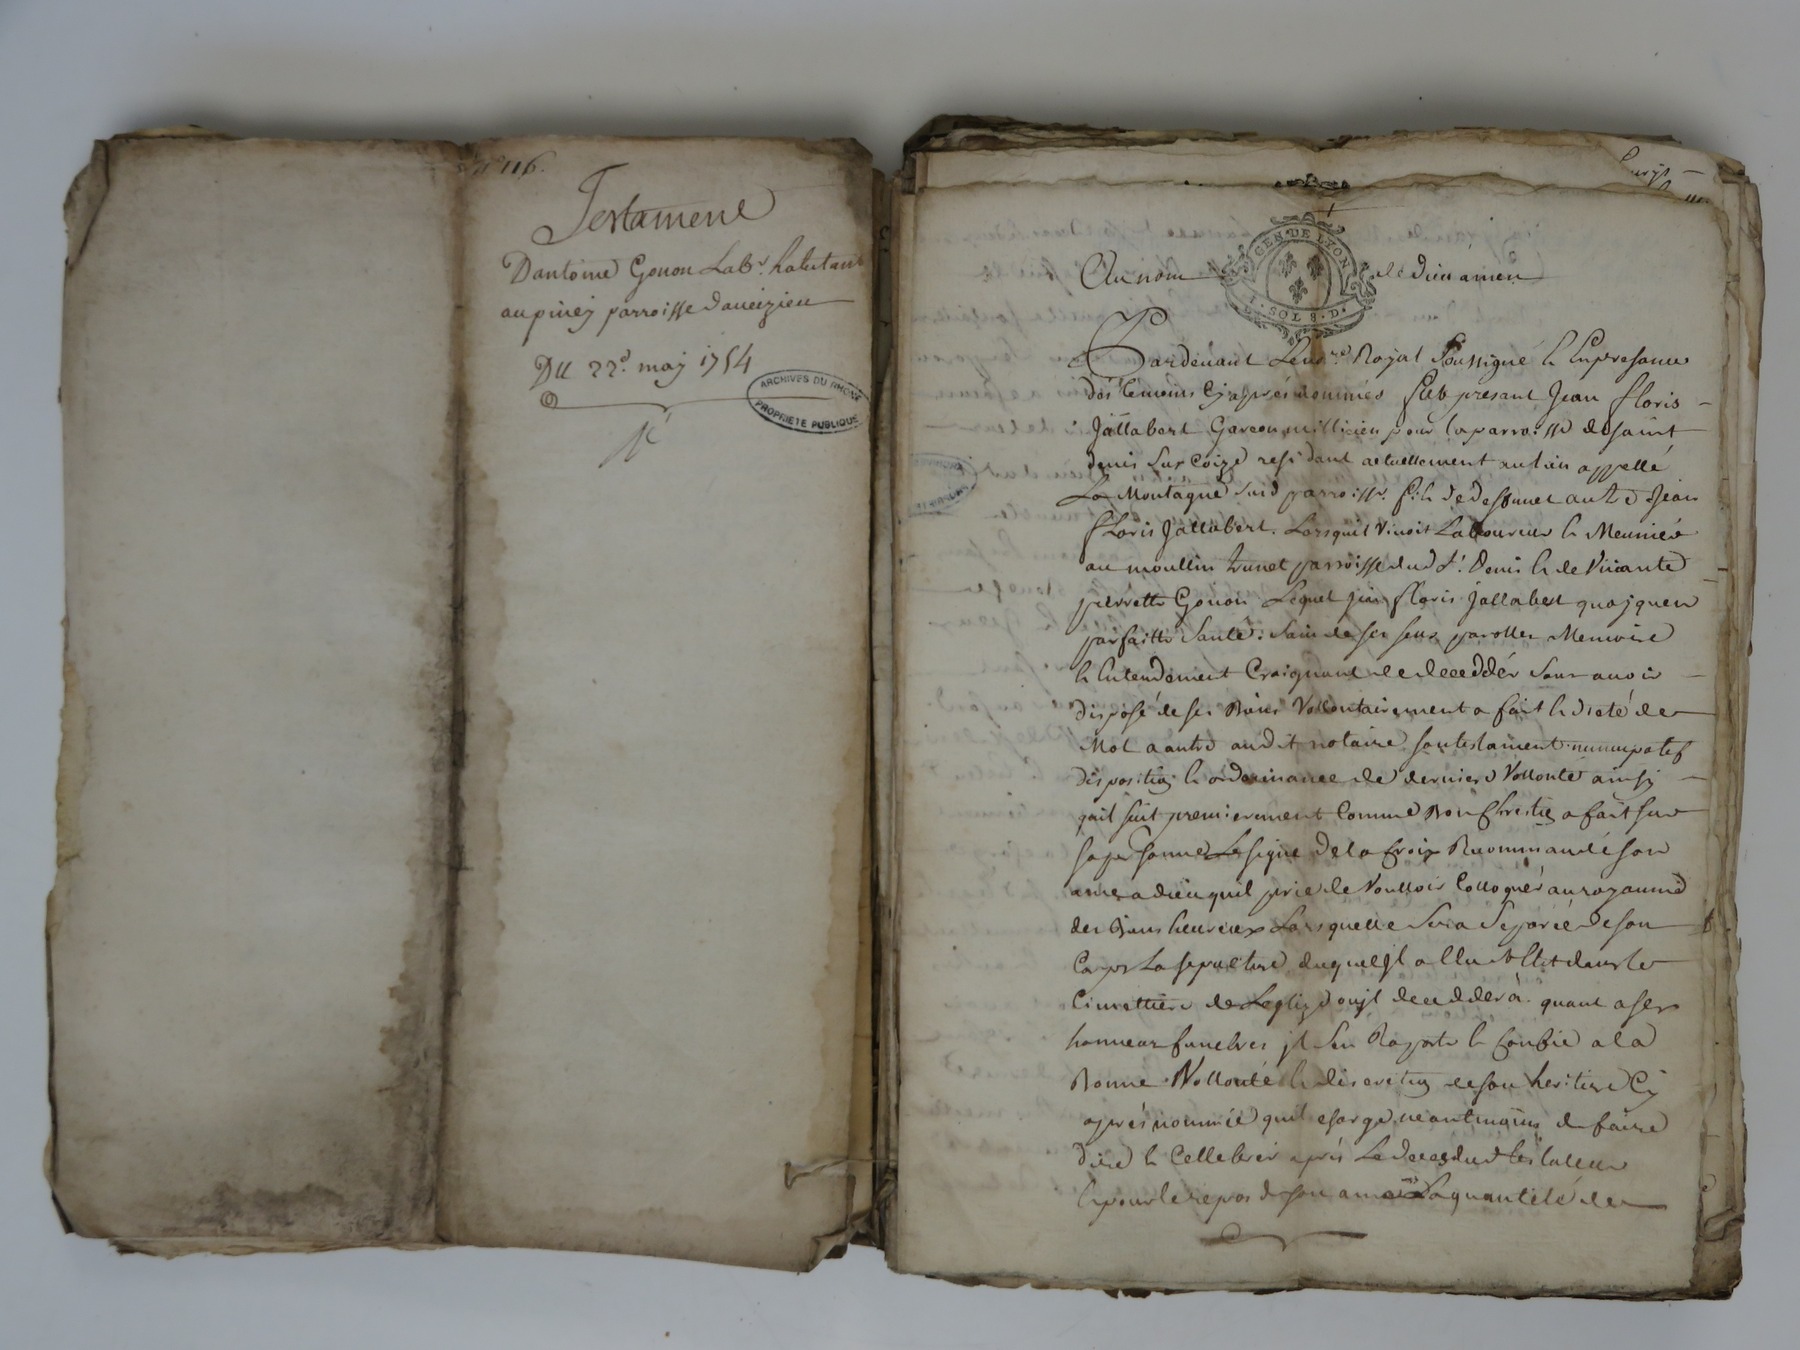 n° 116.
Testament
Dantoine Gonon Labr. habitant
au piney parroisse daveizieu
Du 22e. may 1754
ARCHIVES DU RHONE
PROPRIETE PUBLIQUE
GEN. DE LYON
1. SOL 8. D.
Au nom de dieu amen
Pardevant Le nore. Royal soussigné & En presance
des temoins Cy apres nommés fut presant Jean floris
Jallabert Garcon millicien pour la parroisse de saint
denis sur Coize residant actuellement au lieu appellé
La Montagne susd parroisse. fils de deffunct autre Jean
floris Jallabert. Lorsquil vivoit Laboureur & Meunier
au moullin parroisse dud St. Denis & de vivante
pierrette Gonon Lequel jean floris Jallabert quoyquen
parfaitte santé. Sain de ses sens parolle Memoire
& Entendement Craignant de deceddér sans avoir
disposé de ses Biens Vollontairement a fait & dicté de
Mot a autre audit notaire son testament nuncupatif
disposition & ordonnance de derniere Vollonté ainsy
quil suit premierement Comme Bon Chrestien a fait sur
sa personne Le signe de la Croix Recommandé son
ame a dieu quil prie de Voulloir Colloquer au royaume
des Biens heureux Lors quelle sera separée de son
Corps La sepulture duquel jl a Elu & Elit dans le
Cimettiere de Leglize ou jl deceddera. quant a ses
honneurs funebres jl sen Raporte & Confie a la
Bonne Vollonté & discretion de son heritiere Cy
aprés nommée quil charge neantmoins de faire
dire & Cellebrer aprés Le deces dud testateur
& pour le repos de son ame La quantité de